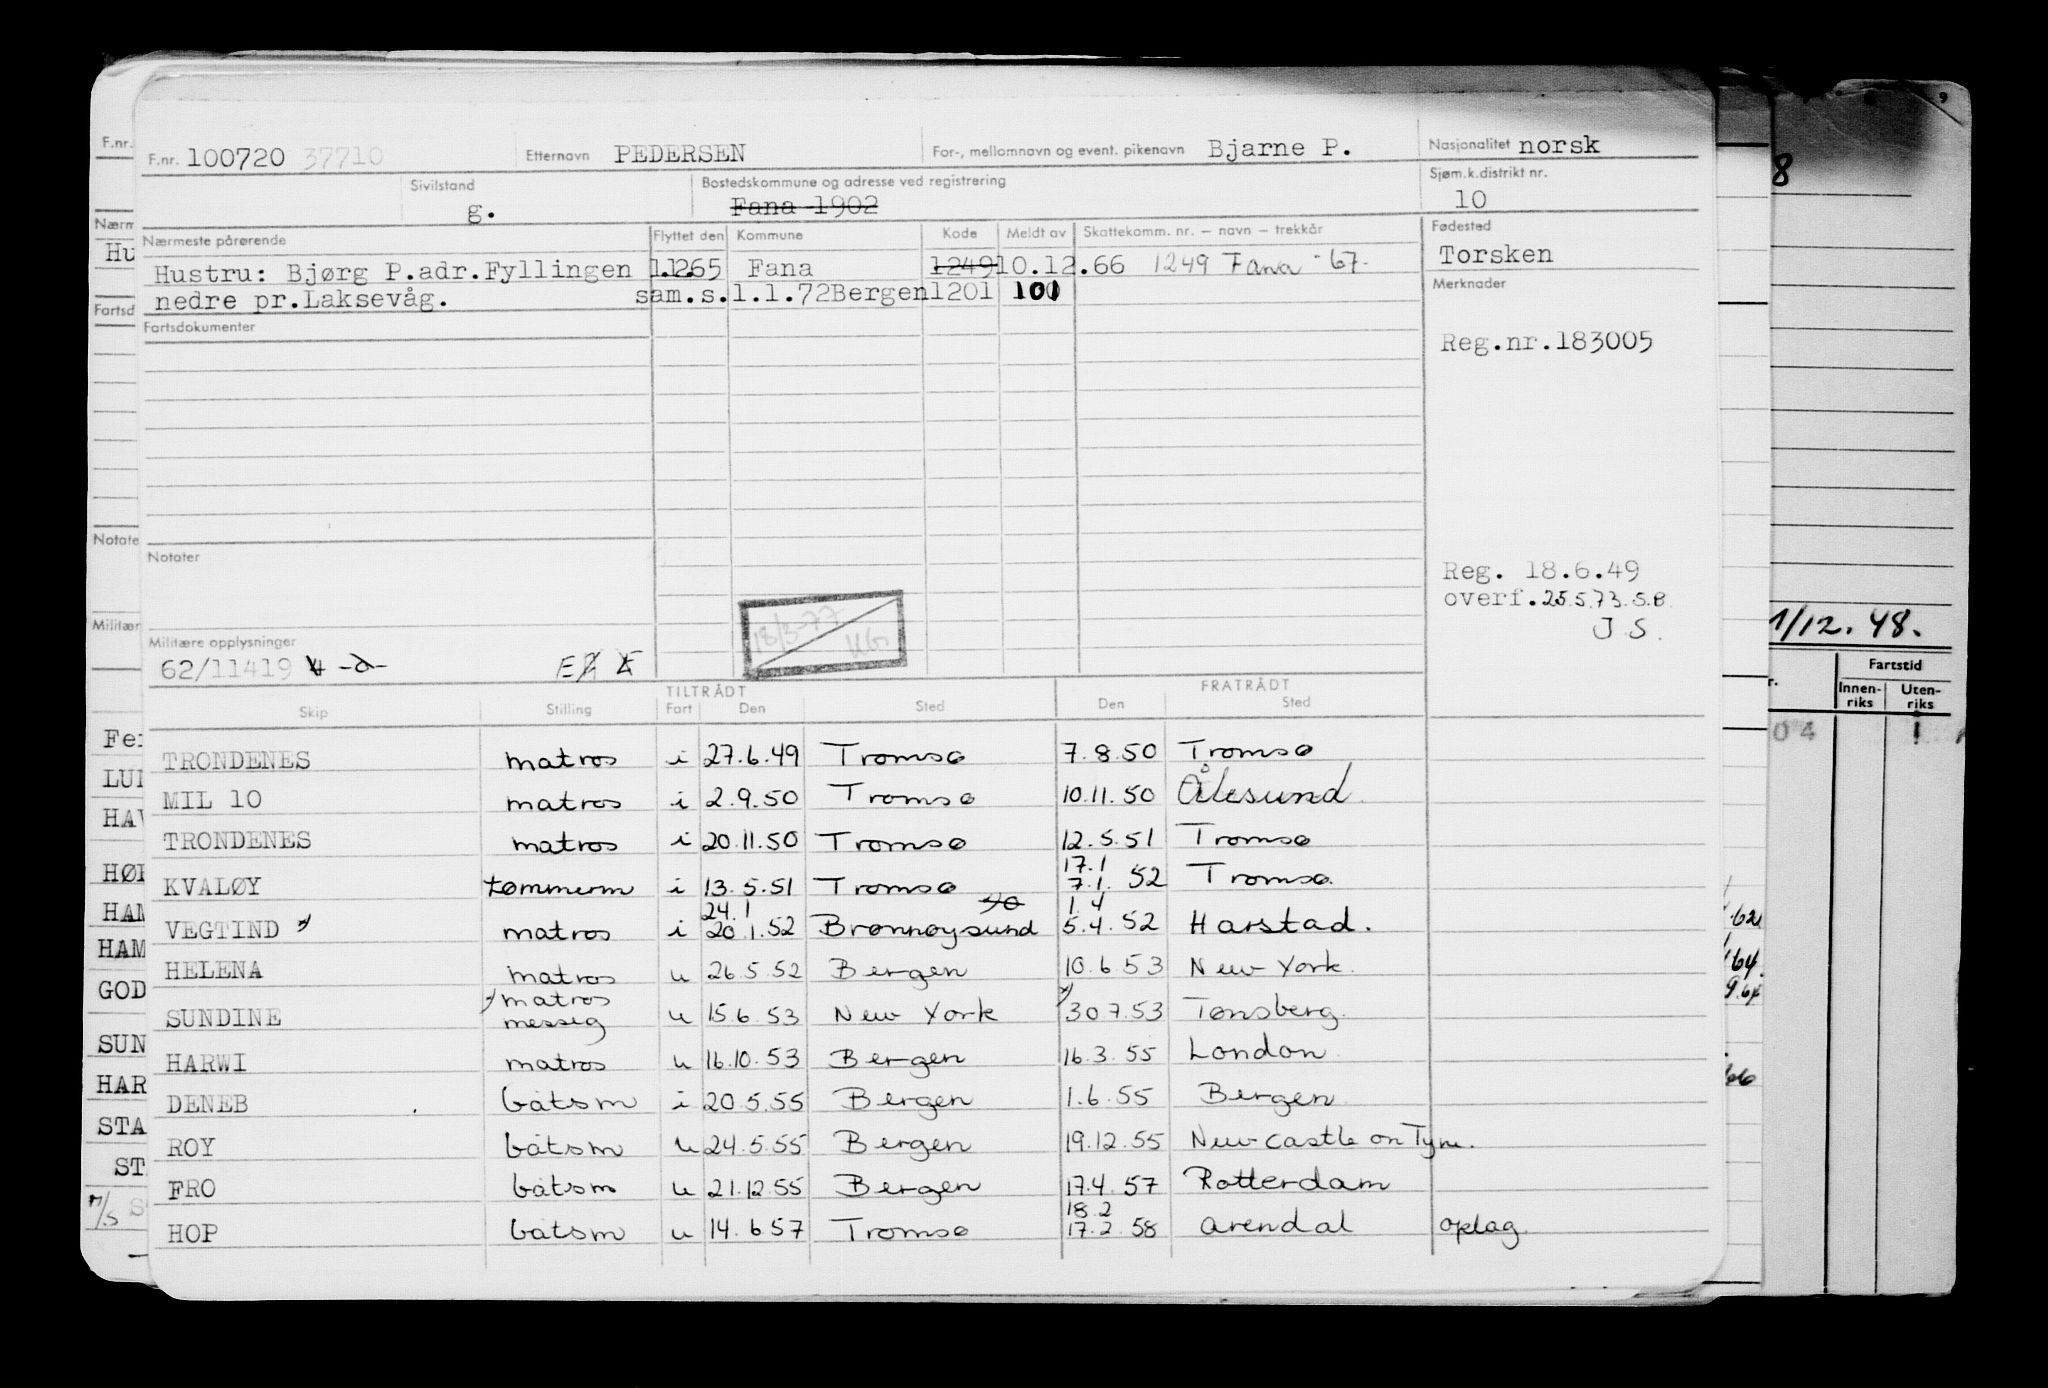 F.nr. 100720 37710 Etternavn PEDERSEN For-, mellomnavn og event. pikenavn Bjarne P. Nasjonalitet norsk
Sivilstand g. Bostedskommune og adresse ved registrering Fana 1902 Sjøm.k.distrikt nr. 10
Nærmeste pårørende Flyttet den Kommune Kode Meldt av Skattekomm. nr. – navn – trekkår Fødested
Hustru: Bjørg P.adr.Fyllingen 1.1265 Fana 1249 10.12.66 1249 Fana -67- Torsken
nedre pr.Laksevåg. sam.s.1.1.72 Bergen 1201 101 Merknader
Fartsdokumenter
Reg.nr.183005
Notater
Reg. 18.6.49
overf.25.5.73.S.B.
J.S.
18/3-77
Militære opplysninger
62/11419
TILTRÅDT FRATRÅDT
Skip Stilling Fart Den Sted Den Sted
TRONDENES matros i 27.6.49 Tromsø 7.8.50 Tromsø
MIL 10 matros i 2.9.50 Tromsø 10.11.50 Ålesund
TRONDENES matros i 20.11.50 Tromsø 12.5.51 Tromsø
17.1
KVALØY tømmerm i 13.5.51 Tromsø 7.1. 52 Tromsø
24.1 1.4
VEGTIND matros i 20.1.52 Brønnøysund 5.4.52 Harstad.
HELENA matros u 26.5.52 Bergen 10.6.53 New York.
matros
SUNDINE messeg u 15.6.53 New York 30.7.53 Tønsberg.
HARWI matros u 16.10.53 Bergen 16.3.55 London
DENEB båtsm i 20.5.55 Bergen 1.6.55 Bergen
ROY båtsm u 24.5.55 Bergen 19.12.55 Newcastle on Tyne.
FRO båtsm u 21.12.55 Bergen 17.4.57 Rotterdam
18.2
HOP båtsm u 14.6.57 Tromsø 17.2.58 Arendal oplag.
F.nr.
Nærm
Hu
Fartsd
Notate
Militær
LUI
HAM
HAM
GOD
SUN
HAR
STA
ST
M/S
8
1/12.48.
Fartstid
Innen-riks Uten-riks
04
62
64.